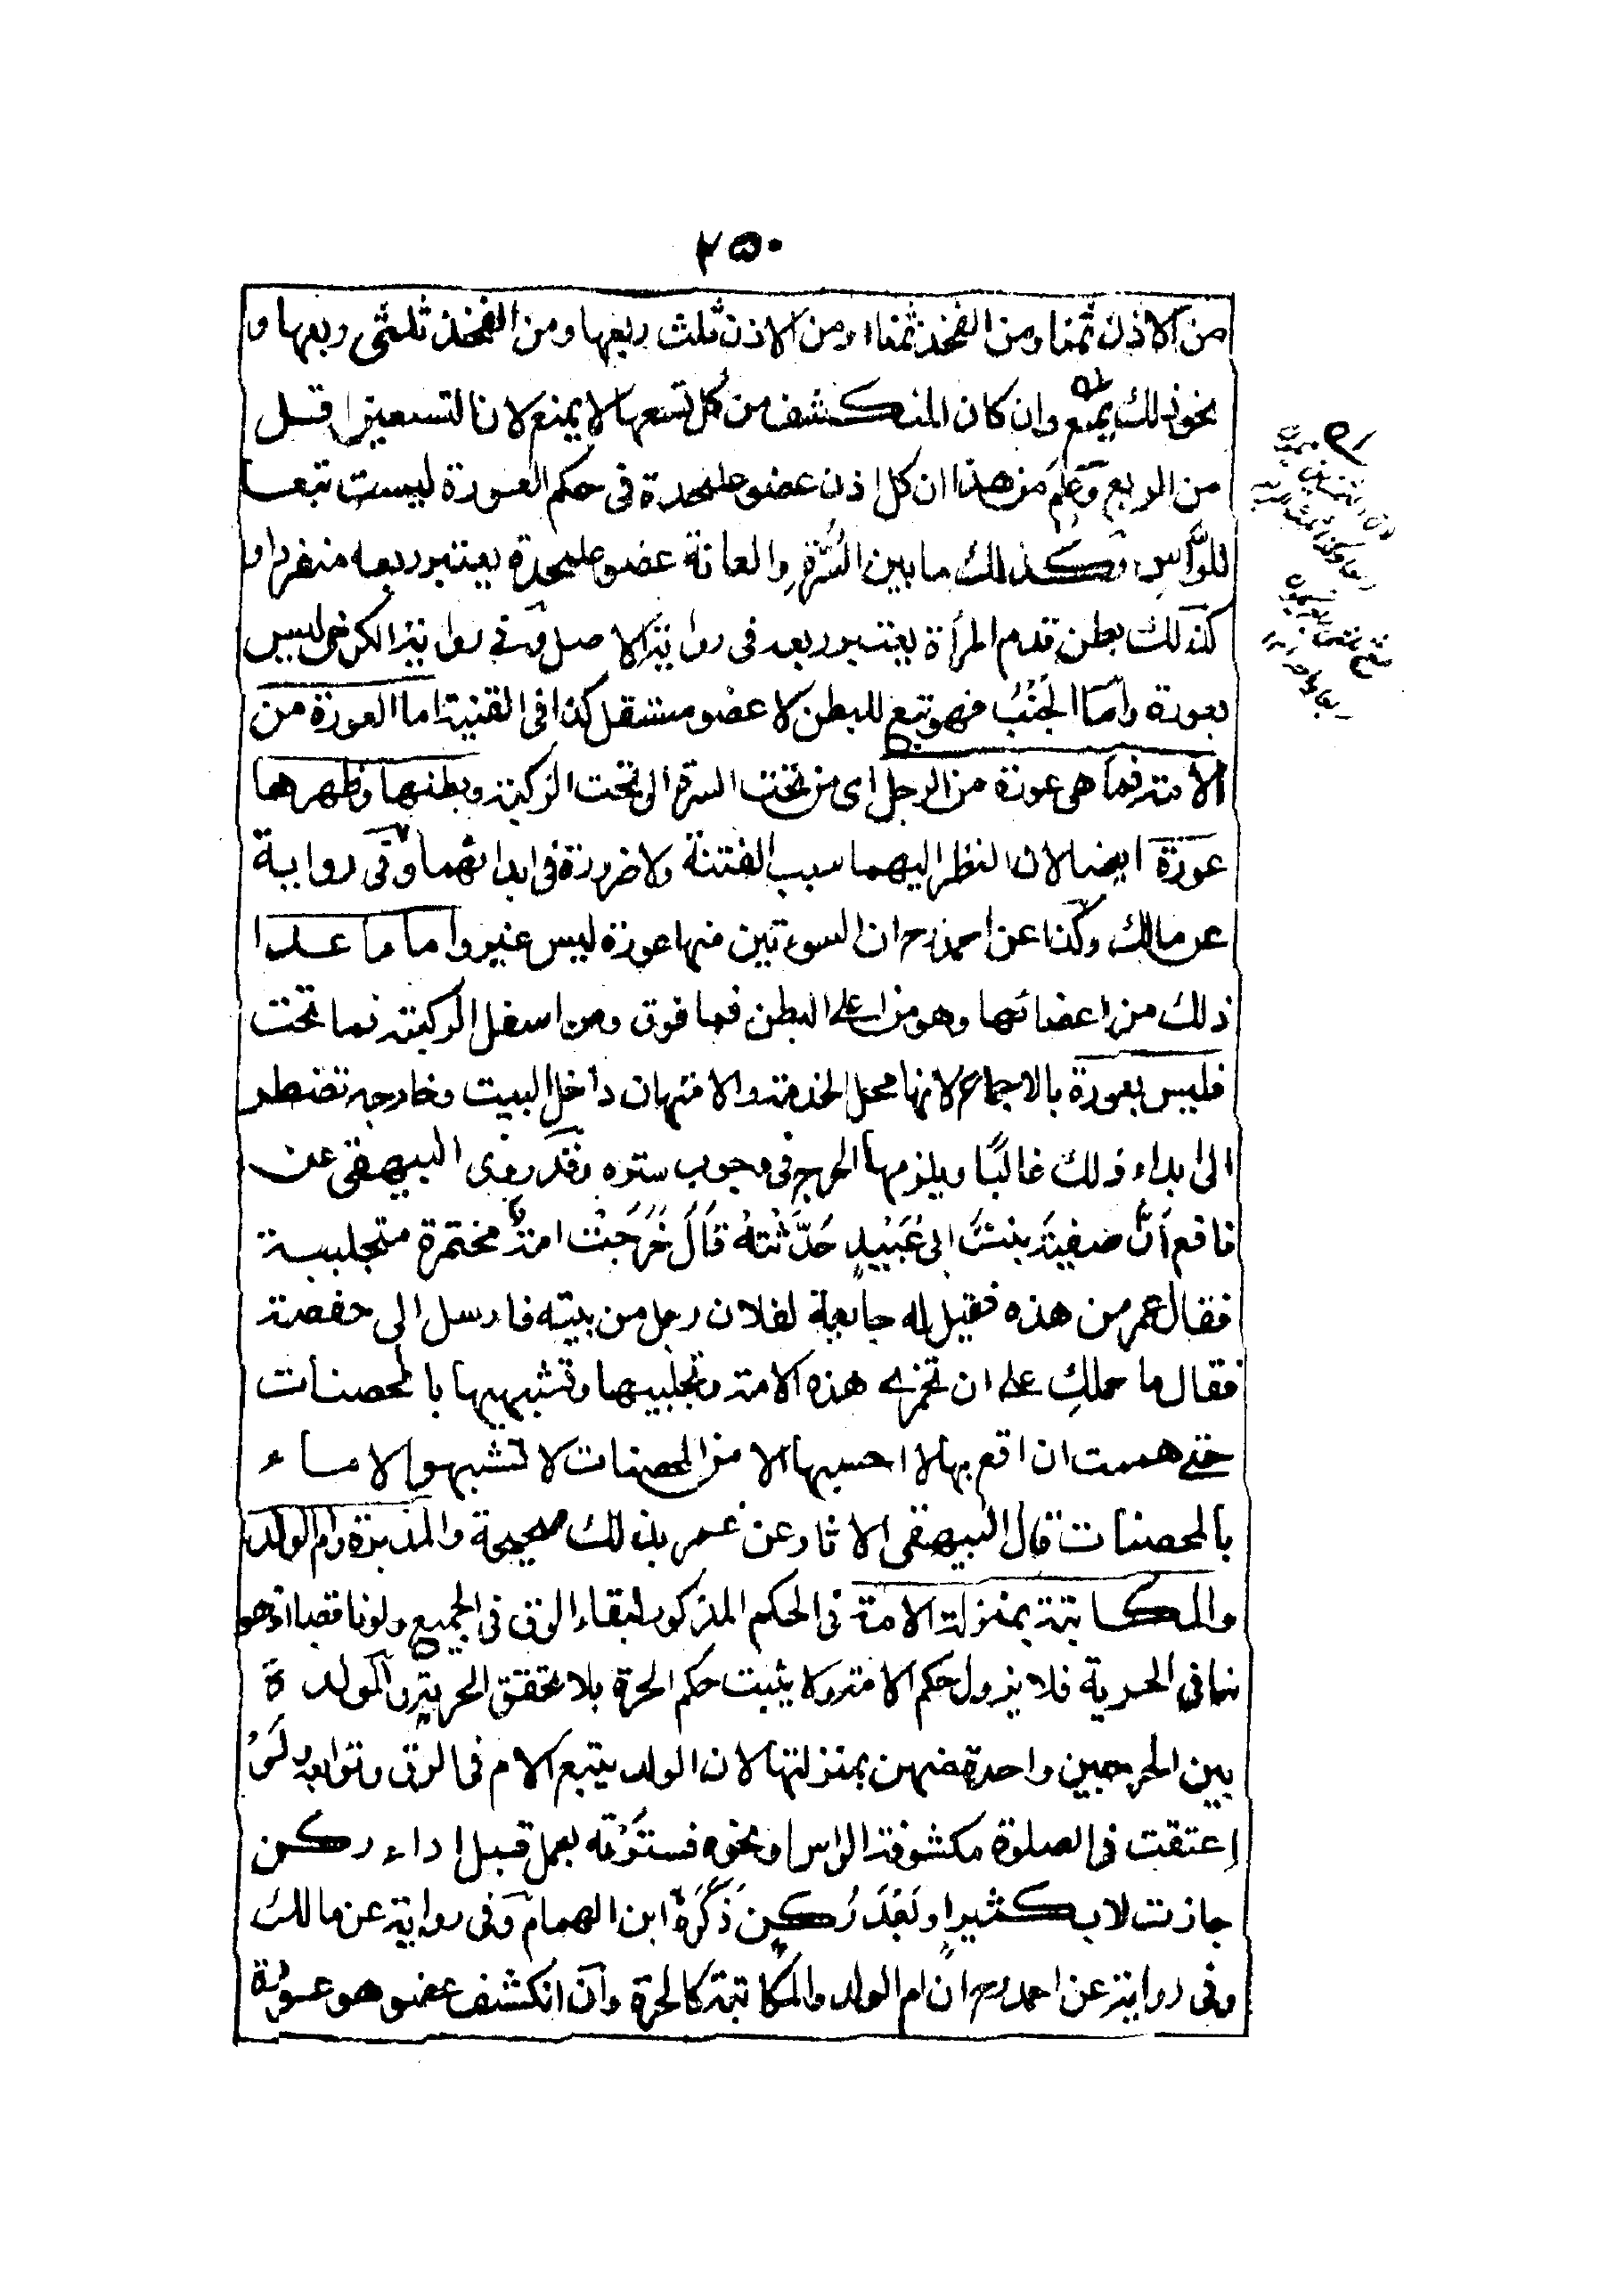 ٢٥٠
من الاذن ثمنا ومن الفخذ ثمنا او من الاذن ثلث ربعها ومن الفخذ ثلثى ربعها و
نحو ذلك يمنع وان كان المنكشف من كل تسعها لا يمنع لان التسعين اقل
من الربع وعلم من هذا ان كل اذن عضو عليحدة فى حكم العورة ليست تبعا
للرّأسِ وكذلك ما بين السُّرّةِ والعانة عضو عليحدة يعتبر ربعه منفردا و
كذلك بطن قدم المرأة يعتبر ربعه فى رواية الاصل وفى رواية الكرخى ليس
بعورة واما الجَنْبُ فهو تبع للبطن لا عضو مستقل كذا فى القنية اما العورة من
الامة فما هى عورة من الرجل اى من تحت السرة الى تحت الركبة وبطنها وظهرها
عورة ايضا لان النظر اليهما سبب الفتنة ولا ضرورة فى ابدائهما وفى رواية
عن مالك وكذا عن احمد رح ان السوءتين منها عورة ليس غير واما ما عدا
ذلك من اعضائها وهو من اعلى البطن فما فوق ومن اسفل الركبة فما تحت
فليس بعورة بالاجماع لانها محل الخدمة والامتهان داخل البيت وخارجه تضطر
الى ابداء ذلك غالبًا ويلزمها الحرج فى وجوب ستره وقد روى البيهقى عن
نافع اَنَّ صفيةَ بنتَ ابى عُبَيْدٍ حَدَّثَتْهُ قَالَ خَرَجَتْ امةٌ مختمرة متجلببة
فقال عمر من هذه فقيل له جارية لفلان رجل من بيته فارسل الى حفصة
فقال ما حملكِ على ان تخمرى هذه الامة وتجلببيها وتشبهيها بالمحصنات
حتى هممت ان اقع بها لا احسبها الا من المحصنات لا تشبهوا الاماء
بالمحصنات قال البيهقى الاثار عن عمر بذلك صحيحة والمدبرة وام الولد
والمكاتبة بمنزلة الامة فى الحكم المذكور لبقاء الرق فى الجميع ولو ناقصا اذ هو
ينافى الحرية فلا يزول حكم الامة ولا يثبت حكم الحرة بلا تحقق الحرية والمولدة
بين الحر وبين واحدة منهن بمنزلتها لان الولد يتبع الام فى الرق وتوابعه ولَوْ
اعتقت فى الصلوة مكشوفة الراس او نحوه فستَرَتْه بعمل قبل اداء ركن
جازت لا ب كثيرٍ او بَعْدَ رُكنٍ ذَكَرَهُ ابن الهمام وفى رواية عن مالك
وفى رواية عن احمد رح ان ام الولد والمكاتبة كالحرة وان انكشف عضو هو عورة